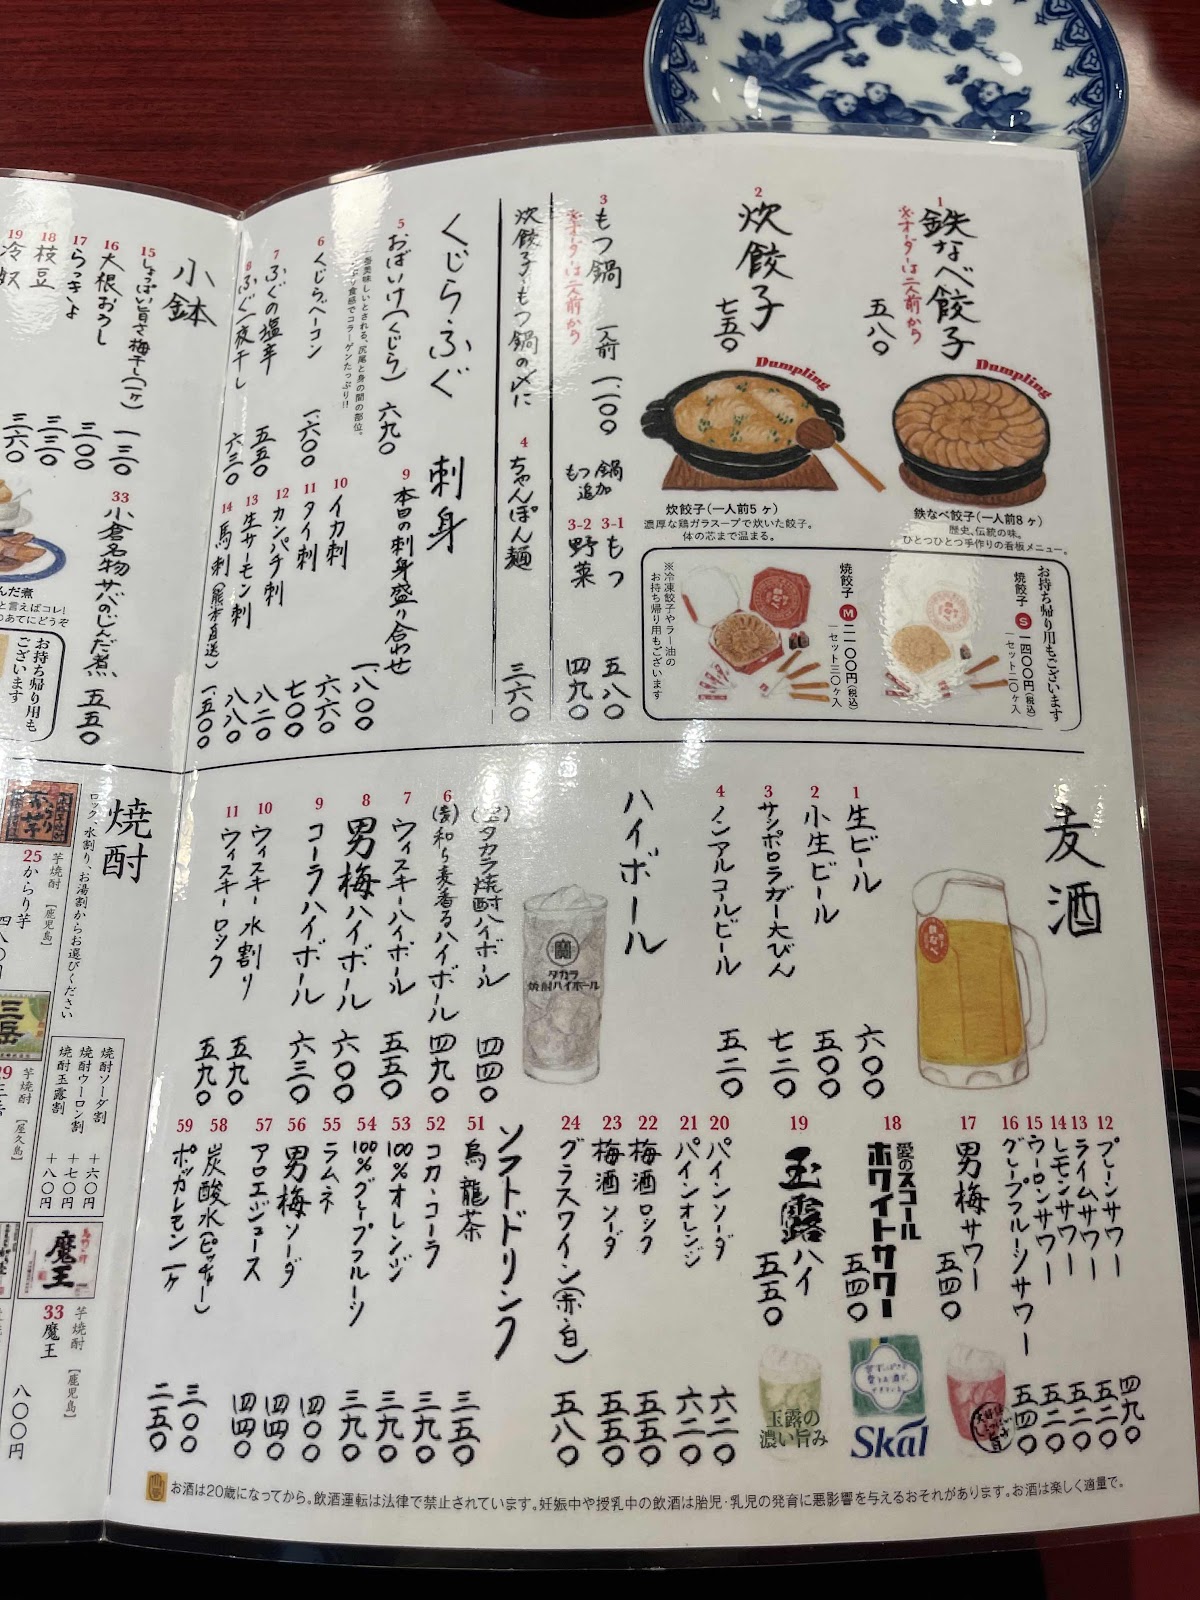 1
鉄なべ餃子
※オーダーは二人前から
五八〇
Dumpling
鉄なべ餃子(一人前8ヶ)
歴史、伝統の味。
ひとつひとつ手作りの看板メニュー。
2
炊餃子
七五〇
Dumpling
炊餃子(一人前5ヶ)
濃厚な鶏ガラスープで炊いた餃子。
体の芯まで温まる。
お持ち帰り用もございます
焼餃子 S 一四〇〇円(税込)
一セット二〇ヶ入
焼餃子 M 二一〇〇円(税込)
一セット三〇ヶ入
※冷凍餃子やラー油の
お持ち帰り用もございます
3
もつ鍋 一人前 一、一〇〇
※オーダーは二人前から
鍋加
もつ追
3-1 もつ 五八〇
3-2 野菜 四九〇
炊餃子・もつ鍋の〆に
4 ちゃんぽん麺 三六〇
くじら・ふぐ
5 おばいけ(くじら) 六九〇
一番美味しいとされる、尻尾と身の間の部位。
食感でコラーゲンたっぷり!!
6 くじらベーコン 一、六〇〇
7 ふぐの塩辛 五五〇
8 ふぐ一夜干し 六三〇
刺身
9 本日の刺身盛り合わせ 一、八〇〇
10 イカ刺 六六〇
11 タイ刺 七〇〇
12 カンパチ刺 八二〇
13 生サーモン刺 八八〇
14 馬刺(熊本直送) 一、五〇〇
小鉢
15 しょっぱい旨さ梅干し(一ヶ) 一三〇
16 大根おろし 三〇〇
17 らっきょ 三三〇
18 枝豆 三六〇
19 冷奴
33 小倉名物サバのじんだ煮 五五〇
んだ煮
と言えばコレ!
のあてにどうぞ
お持ち帰り用も
ございます
麦酒
1 生ビール 六〇〇
2 小生ビール 五〇〇
3 サッポロラガー大びん 七二〇
4 ノンアルコールビール 五二〇
ハイボール
タカラ
焼酎ハイボール
タカラ焼酎ハイボール 四四〇
6 (麦)和ら麦香るハイボール 四九〇
7 ウィスキーハイボール 五五〇
8 男梅ハイボール 六〇〇
9 コーラハイボール 六三〇
10 ウィスキー水割り 五九〇
11 ウィスキーロック 五九〇
12 プレーンサワー 四九〇
13 ライムサワー 五二〇
14 レモンサワー 五二〇
15 ウーロンサワー 五二〇
16 グレープフルーツサワー 五四〇
17 男梅サワー 五四〇
18 愛のスコールホワイトサワー 五四〇
Skal
19 玉露ハイ 五五〇
玉露の
濃い旨み
20 パインソーダ 六二〇
21 パインオレンジ 六二〇
22 梅酒ロック 五五〇
23 梅酒ソーダ 五五〇
24 グラスワイン(赤・白) 五八〇
ソフトドリンク
51 烏龍茶 三五〇
52 コカ・コーラ 三九〇
53 100%オレンジ 三九〇
54 100%グレープフルーツ 三九〇
55 ラムネ 四〇〇
56 男梅ソーダ 四四〇
57 アロエジュース 四四〇
58 炭酸水(ピッチャー) 三〇〇
59 ポッカレモン一ヶ 二五〇
焼酎
ロック、水割り、お湯割からお選びください
焼酎ソーダ割 +六〇円
焼酎ウーロン割 +七〇円
焼酎玉露割 +八〇円
芋焼酎 [鹿児島]
25 からり芋 四八〇円
三岳
芋焼酎 [屋久島]
29 三岳
魔王
芋焼酎 [鹿児島]
33 魔王 八〇〇円
お酒は20歳になってから。飲酒運転は法律で禁止されています。妊娠中や授乳中の飲酒は胎児・乳児の発育に悪影響を与えるおそれがあります。お酒は楽しく適量で。